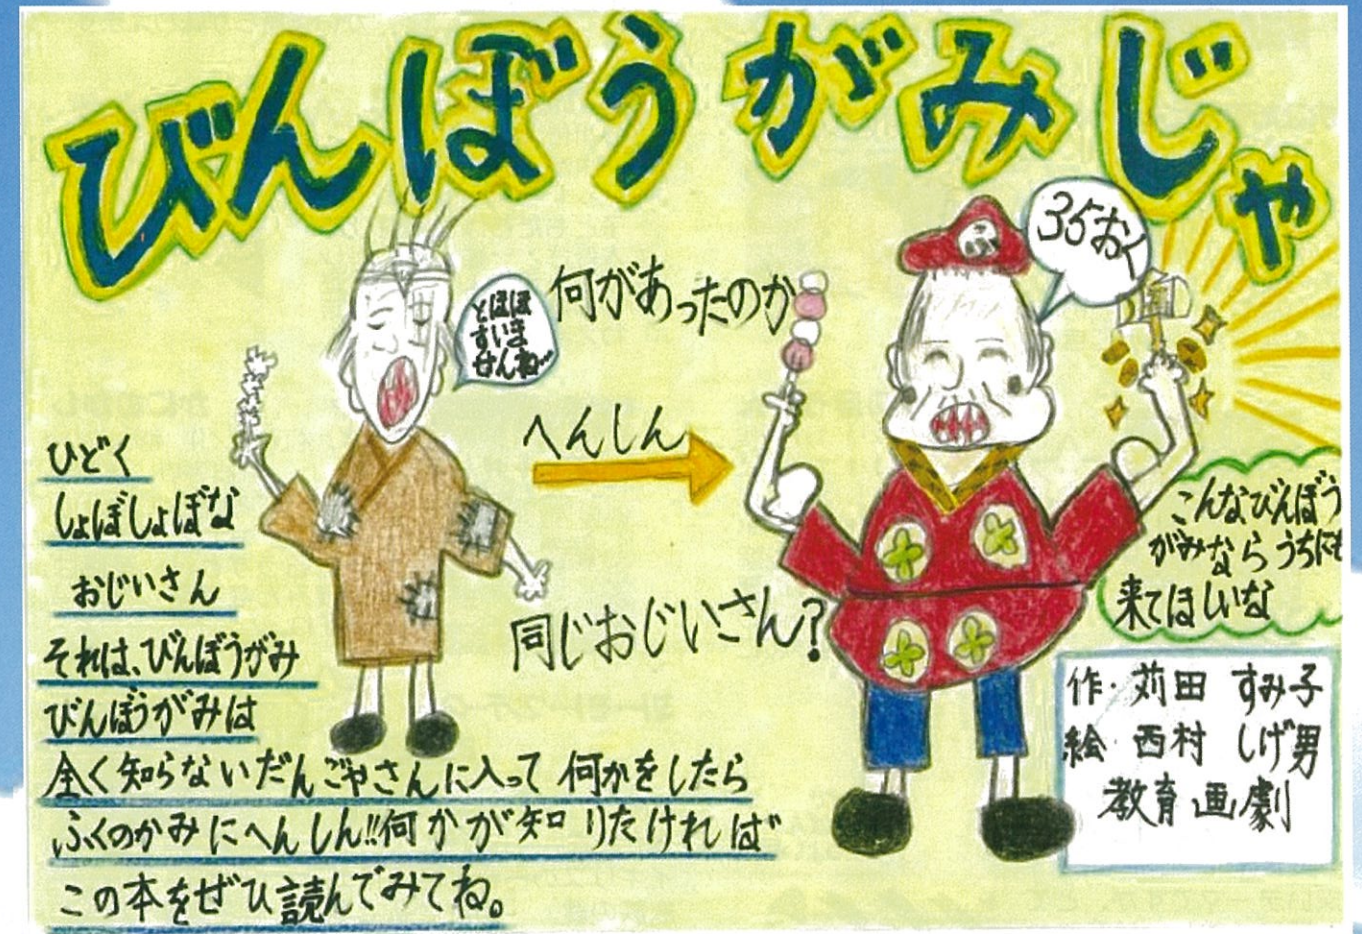 びんぼうがみじゃ
35おく
とほほ
すいま
せんね…
何があったのか
へんしん
同じおじいさん?
ひどく
しょぼしょぼな
おじいさん
それは、びんぼうがみ
びんぼうがみは
全く知らないだんごやさんに入って何かをしたら
ふくのかみにへんしん!!何かが知りたければ
この本をぜひ読んでみてね。
こんなびんぼう
がみならうちにも
来てほしいな
作・苅田 すみ子
絵・西村 しげ男
教育画劇